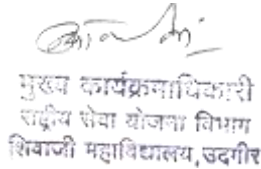 मुख्य कार्यक्रमाधिकारी
राष्ट्रीय सेवा योजना विभाग
शिवाजी महाविद्यालय, उदगीर